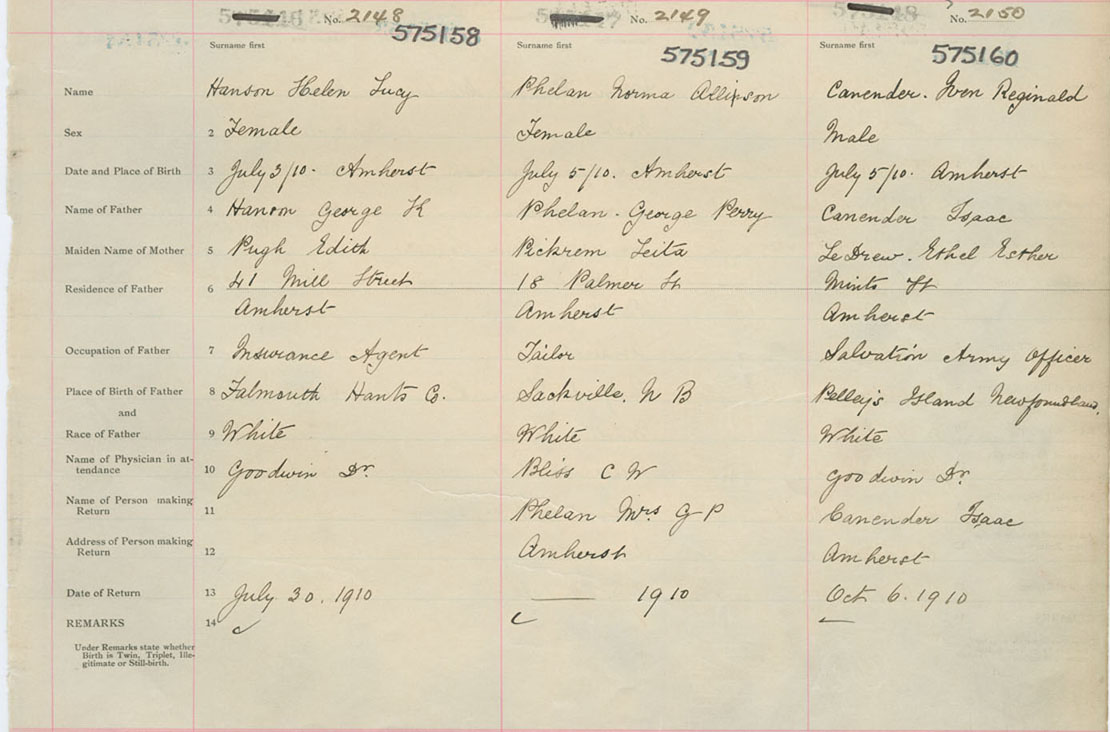 No. 2148 No. 2149 No. 2150
575158 575159 575160
Surname first Surname first Surname first
Name Hanson Helen Lucy Phelan Norma Allison Canender. Iven Reginald
Sex 2 Female Female Male
Date and Place of Birth 3 July 3/10. Amherst July 5/10. Amherst July 5/10. Amherst
Name of Father 4 Hanson George K Phelan. George Perry Canender Isaac
Maiden Name of Mother 5 Pugh Edith Pickrem Leita Le Drew. Ethel Esther
Residence of Father 6 41 Mill Street 18 Palmer St Mints St
Amherst Amherst Amherst
Occupation of Father 7 Insurance Agent Tailor Salvation Army Officer
Place of Birth of Father 8 Falmouth Hants Co. Sackville. N B Pelley's Island Newfoundland.
and
Race of Father 9 White White White
Name of Physician in at-
tendance 10 Goodwin Dr. Bliss C W Goodwin Dr.
Name of Person making
Return 11 Phelan Mrs G P Canender Isaac
Address of Person making
Return 12 Amherst Amherst
Date of Return 13 July 30. 1910 1910 Oct 6. 1910
REMARKS 14
Under Remarks state whether
Birth is Twin, Triplet, Ille-
gitimate or Still-birth.